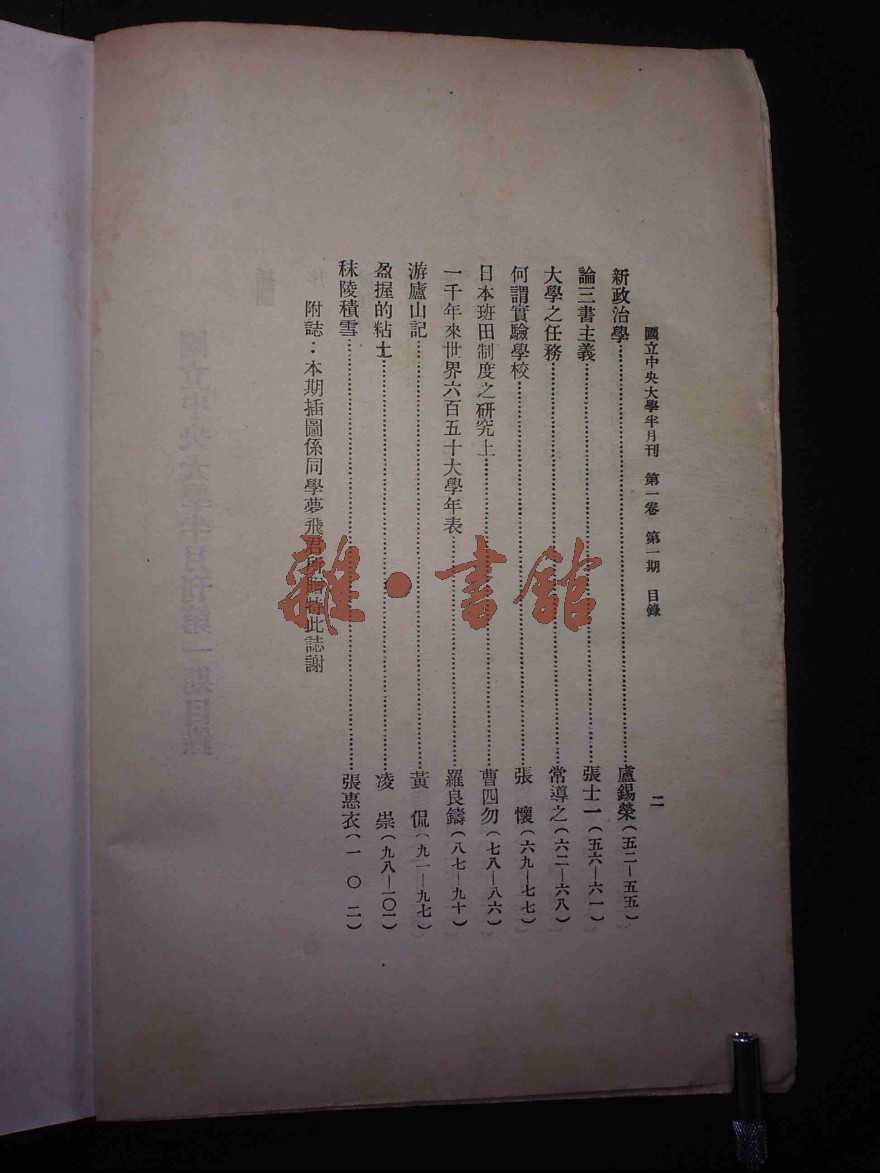 國立中央大學半月刊 第一卷 第一期 目錄 二
新政治學……盧錫榮(五二—五五)
論三書主義……張士一(五六—六一)
大學之任務……常導之(六二—六八)
何謂實驗學校……張 懷(六九—七七)
日本班田制度之研究上……曹四勿(七八—八六)
一千年來世界六百五十大學年表……羅良鑄(八七—九十)
游廬山記……黃 侃(九一—九七)
盈握的粘土……凌 崇(九八—一〇一)
秣陵積雪……張惠衣(一〇二)
附誌：本期插圖係同學夢飛君所贈特此誌謝
雜·書館
國立中央大學半月刊第一期目錄